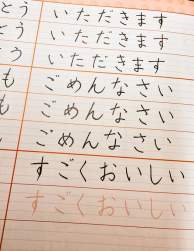 とう いただきます
とう いただきます
とう いただきます
も ごめんなさい
ごめんなさい
ごめんなさい
すごくおいしい
すごくおいしい